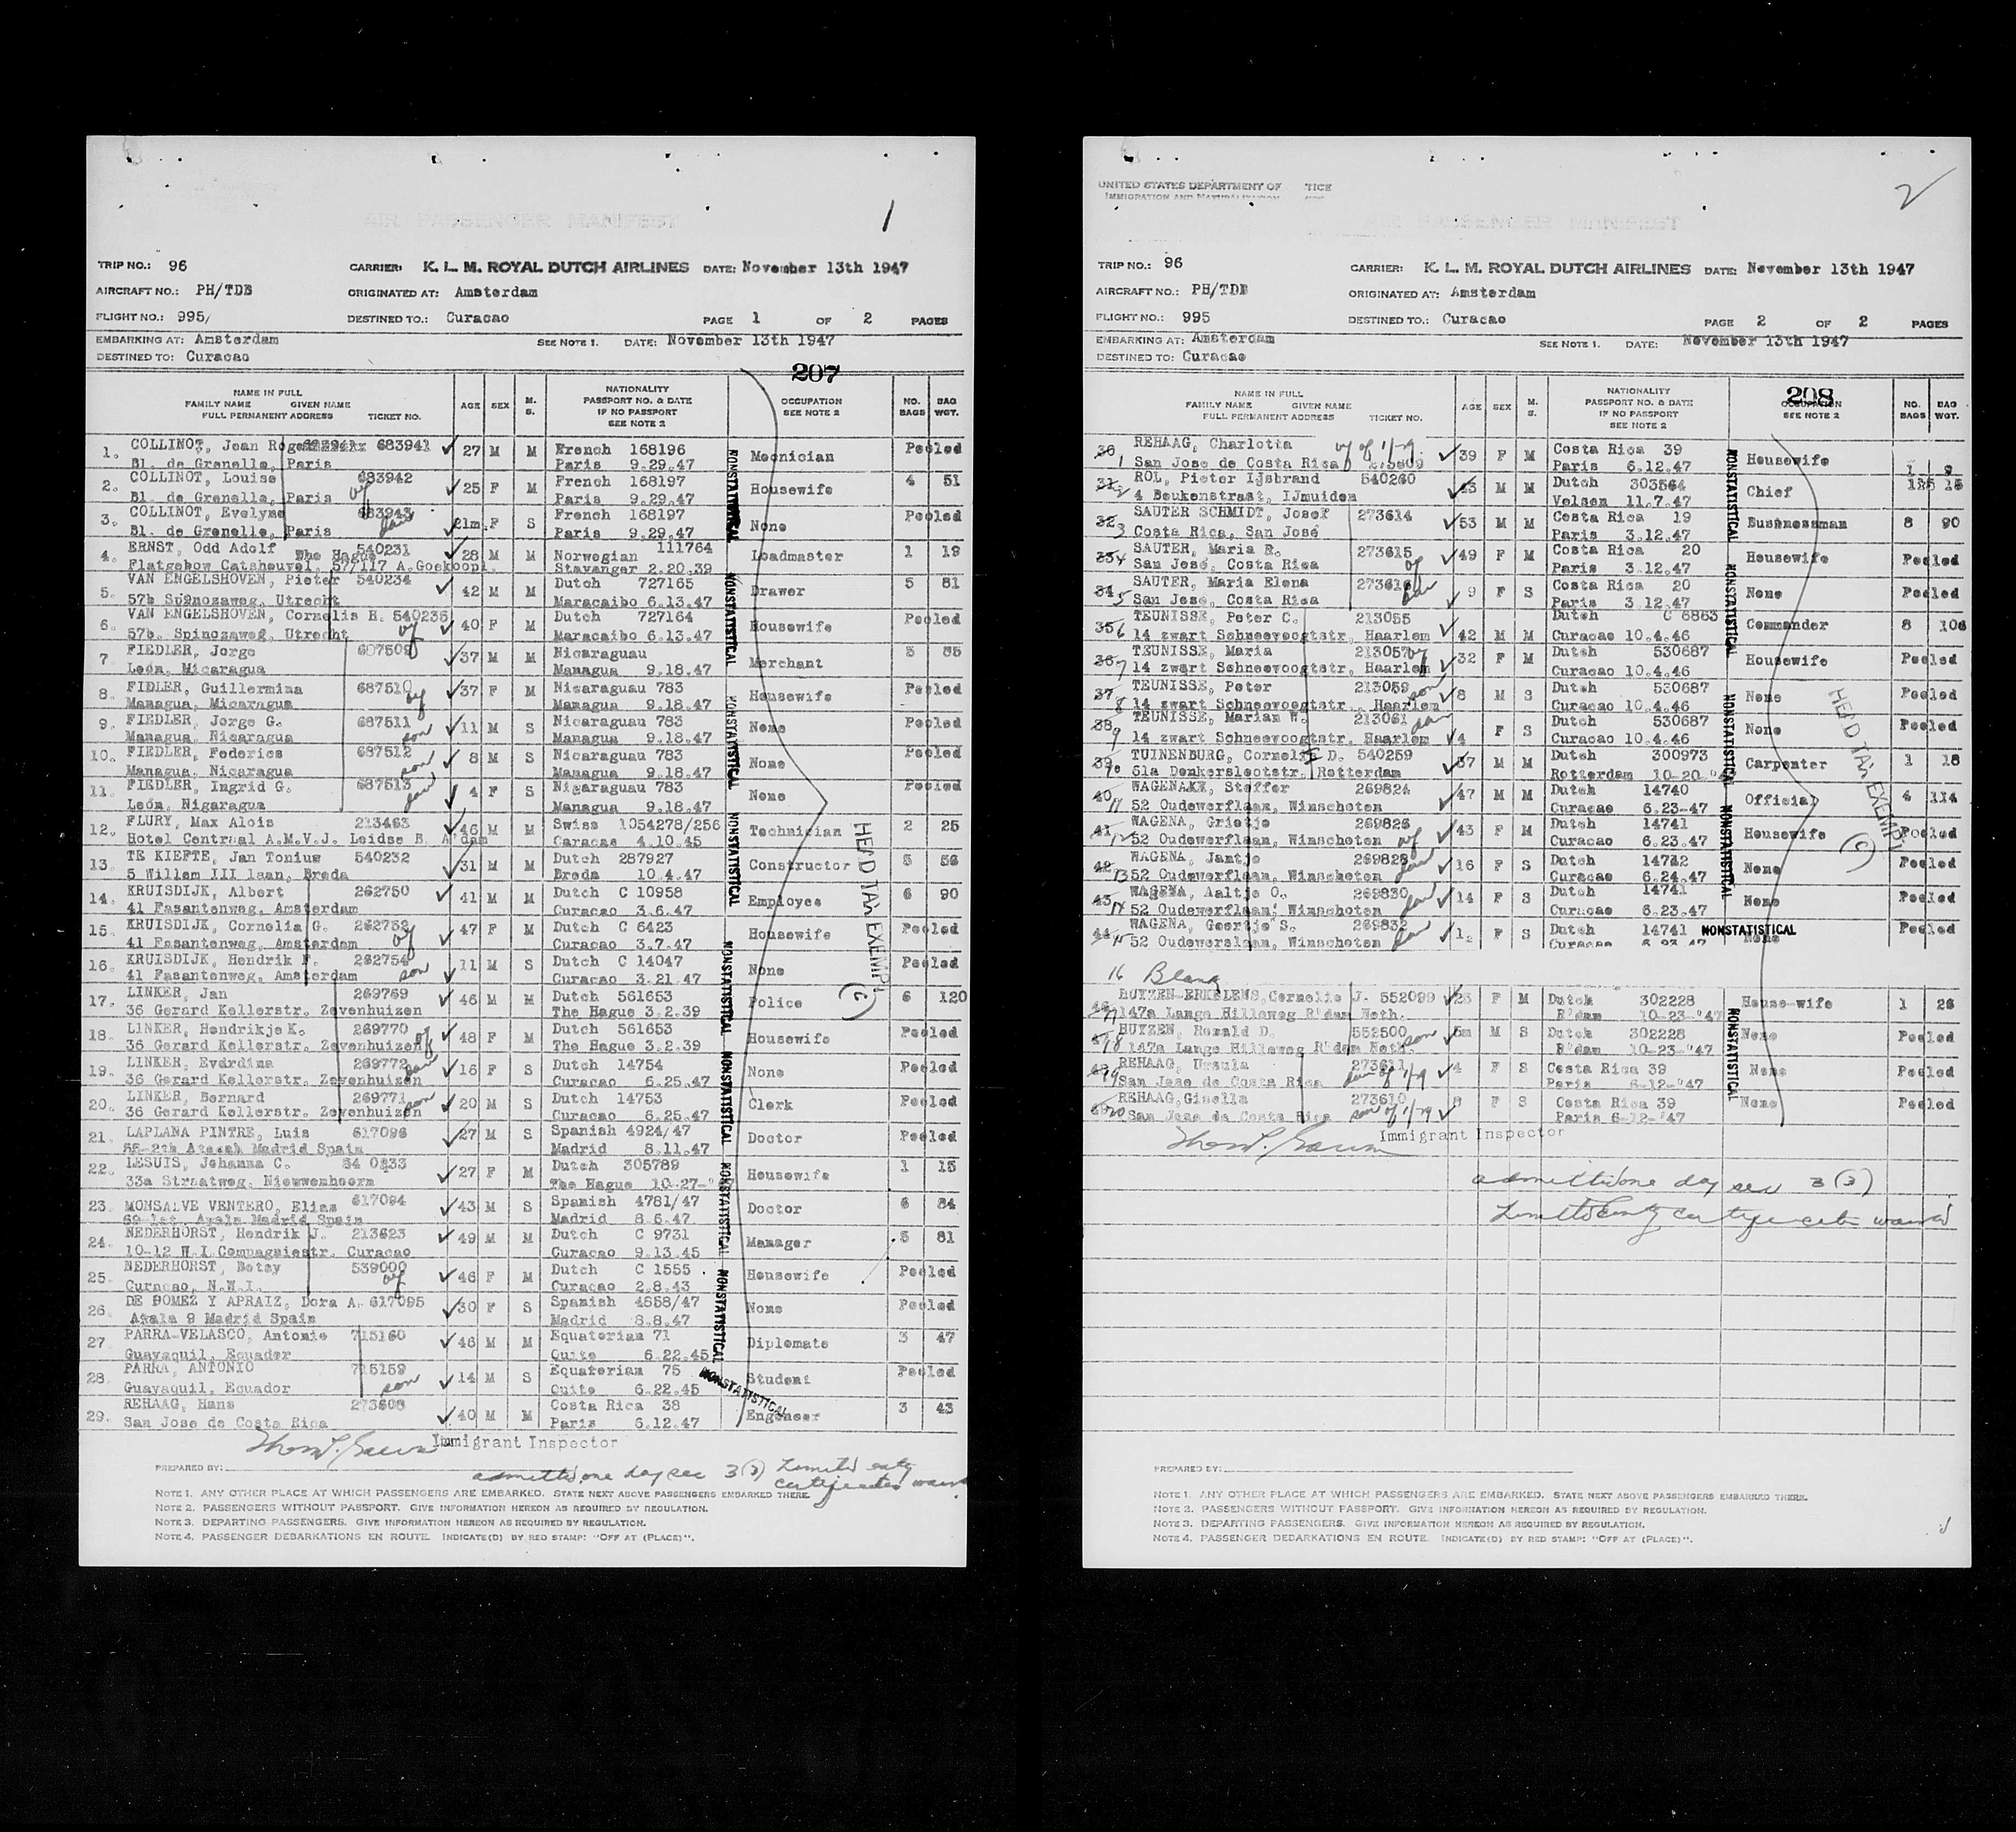 1
AIR PASSENGER MANIFEST
TRIP NO.: 96 CARRIER: K. L. M. ROYAL DUTCH AIRLINES DATE: November 13th 1947
AIRCRAFT NO.: PH/TDB ORIGINATED AT: Amsterdam
FLIGHT NO.: 995/ DESTINED TO.: Curacao PAGE 1 OF 2 PAGES
EMBARKING AT: Amsterdam SEE NOTE 1. DATE: November 13th 1947
DESTINED TO: Curacao
207
NAME IN FULL
FAMILY NAME GIVEN NAME
FULL PERMANENT ADDRESS TICKET NO. AGE SEX M. S. NATIONALITY PASSPORT NO. & DATE IF NO PASSPORT SEE NOTE 2 OCCUPATION SEE NOTE 2 NO. BAGS BAG WGT.
1. COLLINOT, Jean Roger 683941 27 M M French 168196 Mecnician Pooled
Bl. de Grenelle, Paris Paris 9.29.47
2. COLLINOT, Louise 683942 25 F M French 168197 Housewife 4 51
Bl. de Grenelle, Paris wf Paris 9.29.47
3. COLLINOT, Evelyne 683943 21m. F S French 168197 None Pooled
Bl. de Grenelle, Paris dau Paris 9.29.47
4. ERNST, Odd Adolf The Hague 540231 28 M M Norwegian 111764 Loadmaster 1 19
Flatgebow Catsheuvel, 57/117 A.Goekoopl. Stavanger 2.20.39
5. VAN ENGELSHOVEN, Pieter 540234 42 M M Dutch 727165 Drawer 5 81
57b Spinozaweg, Utrecht Maracaibo 6.13.47
6. VAN ENGELSHOVEN, Cornelis H. 540236 40 F M Dutch 727164 Housewife Pooled
57b. Spinozaweg, Utrecht wf Maracaibo 6.13.47
7. FIEDLER, Jorge 687509 37 M M Nicaraguau Merchant 5 85
León, Micaragua Managua 9.18.47
8. FIDLER, Guillermina 687510 wf 37 F M Nicaraguau 783 Housewife Pooled
Managua, Micaragua Managua 9.18.47
9. FIEDLER, Jorge G. 687511 11 M S Nicaraguau 783 None Pooled
Managua, Nicaragua son Managua 9.18.47
10. FIEDLER, Federico 687512 8 M S Nicaraguau 783 None Pooled
Managua, Nicaragua son Managua 9.18.47
11. FIEDLER, Ingrid G. 687513 4 F S Nigaraguau 783 None Pooled
León, Nigaragua dau Managua 9.18.47
12. FLURY, Max Alois 213463 46 M M Swiss 1054278/256 Technician 2 25
Hotel Centraal A.M.V.J. Leidse B. A'dam Caracas 4.10.45
13. TE KIEFTE, Jan Tonius 540232 31 M M Dutch 287927 Constructor 5 56
5 Willem III laan, Breda Breda 10.4.47
14. KRUISDIJK, Albert 262750 41 M M Dutch C 10958 Employee 6 90
41 Fasantenweg, Amsterdam Curacao 3.6.47
15. KRUISDIJK, Cornelia G. 262752 47 F M Dutch C 6423 Housewife Pooled
41 Fasantenweg, Amsterdam wf Curacao 3.7.47
16. KRUISDIJK, Hendrik F. 262754 11 M S Dutch C 14047 None Pooled
41 Fasantenweg, Amsterdam son Curacao 3.21.47
17. LINKER, Jan 269769 46 M M Dutch 561653 Police 6 120
36 Gerard Kellerstr. Zevenhuizen The Hague 3.2.39
18. LINKER, Hendrikje K. 269770 48 F M Dutch 561653 Housewife Pooled
36 Gerard Kellerstr. Zevenhuizen wf The Hague 3.2.39
19. LINKER, Everdina 269772 dau 16 F S Dutch 14754 None Pooled
36 Gerard Kellerstr. Zevenhuizen Curacao 6.25.47
20. LINKER, Bernard 269771 son 20 M S Dutch 14753 Clerk Pooled
36 Gerard Kellerstr. Zevenhuizen Curacao 6.25.47
21. LAPLANA PINTRE, Luis 617096 27 M S Spanish 4924/47 Doctor Pooled
Madrid Spain Madrid 8.11.47
22. LESUIS, Johanna C. 27 F M Dutch 305789 Housewife 1 15
33a Straatweg, Nieuwenhoorn The Hague 10-27-
23. MONSALVE VENTERO, Elias 617094 43 M S Spanish 4781/47 Doctor 6 84
Ayala Madrid Spain Madrid 8.6.47
24. NEDERHORST, Hendrik J. 213623 49 M M Dutch C 9731 Manager 5 81
10-12 W.I.Compagniestr. Curacao Curacao 9.13.45
25. NEDERHORST, Betsy 539000 46 F M Dutch C 1555 Housewife Pooled
Curacao, N.W.I. wf Curacao 2.8.43
26. DE GOMEZ Y APRAIZ, Dora A. 617095 30 F S Spanish 4858/47 None Pooled
Ayala 9 Madrid Spain Madrid 8.8.47
27. PARRA-VELASCO, Antonio 715160 46 M M Equatorian 71 Diplomate 3 47
Guayaquil, Ecuador Quito 6.22.45
28. PARRA, ANTONIO 715159 14 M S Equatorian 75 Student Pooled
Guayaquil, Ecuador son Quito 6.22.45
29. REHAAG, Hans 273608 40 M M Costa Rica 38 Engeneer 3 43
San Jose de Costa Rica Paris 6.12.47
NONSTATISTICAL
HEAD TAX EXEMPT
(C)
Immigrant Inspector
PREPARED BY:
admitted one day sec 3(3) Limited entry
certificates waived
NOTE 1. ANY OTHER PLACE AT WHICH PASSENGERS ARE EMBARKED. STATE NEXT ABOVE PASSENGERS EMBARKED THERE.
NOTE 2. PASSENGERS WITHOUT PASSPORT. GIVE INFORMATION HEREON AS REQUIRED BY REGULATION.
NOTE 3. DEPARTING PASSENGERS. GIVE INFORMATION HEREON AS REQUIRED BY REGULATION.
NOTE 4. PASSENGER DEBARKATIONS EN ROUTE. INDICATE(D) BY RED STAMP: "OFF AT (PLACE)".
UNITED STATES DEPARTMENT OF TICE
IMMIGRATION AND NATURALIZATION
2
PASSENGER MANIFEST
TRIP NO.: 96 CARRIER: K. L. M. ROYAL DUTCH AIRLINES DATE: November 13th 1947
AIRCRAFT NO.: PH/TDB ORIGINATED AT: Amsterdam
FLIGHT NO.: 995 DESTINED TO.: Curacao PAGE 2 OF 2 PAGES
EMBARKING AT: Amsterdam SEE NOTE 1. DATE: November 13th 1947
DESTINED TO: Curacao
208
NAME IN FULL
FAMILY NAME GIVEN NAME
FULL PERMANENT ADDRESS TICKET NO. AGE SEX M. S. NATIONALITY PASSPORT NO. & DATE IF NO PASSPORT SEE NOTE 2 OCCUPATION SEE NOTE 2 NO. BAGS BAG WGT.
30 REHAAG, Charlotta wf of 1/29 39 F M Costa Rica 39 Housewife
1 San Jose de Costa Rica 273609 Paris 6.12.47 1 9
31 ROL, Pieter IJsbrand 540260 43 M M Dutch 303564 Chief
2 4 Beukenstraat, IJmuiden Velsen 11.7.47
32 SAUTER SCHMIDT, Josef 273614 53 M M Costa Rica 19 Bushnessman 8 90
3 Costa Rica, San José Paris 3.12.47
33 SAUTER, Maria R. 273615 49 F M Costa Rica 20 Housewife Pooled
4 San José, Costa Rica wf Paris 3.12.47
34 SAUTER, Maria Elena 273616 9 F S Costa Rica 20 None Pooled
5 San José, Costa Rica dau Paris 3.12.47
35 TEUNISSE, Peter C. 213055 42 M M Dutch C 8863 Commander 8 106
6 14 zwart Schneevoogtstr. Haarlem Curacao 10.4.46
36 TEUNISSE, Maria 213057 wf 32 F M Dutch 530687 Housewife Pooled
7 14 zwart Schneevoogtstr, Haarlem Curacao 10.4.46
37 TEUNISSE, Peter 213059 son 8 M S Dutch 530687 None Pooled
8 14 zwart Schneevoogtstr., Haarlem Curacao 10.4.46
38 TEUNISSE, Marian W. 213061 dau 4 F S Dutch 530687 None Pooled
9 14 zwart Schneevoogtstr. Haarlem Curacao 10.4.46
39 TUINENBURG, Cornelis D. 540259 37 M M Dutch 300973 Carpenter 1 18
10 61a Denkerslootstr. Rotterdam Rotterdam 10-20-"47
40 WAGENAKE, Steffer 269824 47 M M Dutch 14740 Official 4 114
11 52 Oudewerflaan, Winschoten Curacao 6.23-47
41 WAGENA, Grietje 269826 43 F M Dutch 14741 Housewife Pooled
12 52 Oudewerflaan, Winschoten wf Curacao 6.23.47
42 WAGENA, Jantje 269828 16 F S Dutch 14742 None Pooled
13 52 Oudewerflaan, Winschoten dau Curacao 6.24.47
43 WAGENA, Aaltje O. 269830 14 F S Dutch 14741 None Pooled
14 52 Oudewerflaan, Winschoten dau Curacao 6.23.47
44 WAGENA, Geertje S. 269832 F S Dutch 14741 None Pooled
15 52 Oudewerslaan, Winschoten dau Curacao 6.23.47
16 Blank
HUYZEN-ERKELENS, Cornelie J. 552099 F M Dutch 302228 House-wife 1 26
17 147a Lange Hilleweg R'dam Neth. R'dam 10-23-'47
HUYZEN, Ronald D. 552500 son M S Dutch 302228 None Pooled
18 147a Lange Hilleweg R'dam Neth. R'dam 10-23-"47
REHAAG, Ursula 273611 4 F S Costa Rica 39 None Pooled
19 San Jose de Costa Rica dau of 1/29 Paris 6-12-"47
REHAAG, Gisella 273610 F S Costa Rica 39 None Pooled
20 San Jose de Costa Rica son of 1/29 Paris 6-12-'47
NONSTATISTICAL
HEAD TAX EXEMPT
(C)
Immigrant Inspector
admitted one day sec 3(3)
Limited entry certificate waived
PREPARED BY:
NOTE 1. ANY OTHER PLACE AT WHICH PASSENGERS ARE EMBARKED. STATE NEXT ABOVE PASSENGERS EMBARKED THERE.
NOTE 2. PASSENGERS WITHOUT PASSPORT. GIVE INFORMATION HEREON AS REQUIRED BY REGULATION.
NOTE 3. DEPARTING PASSENGERS. GIVE INFORMATION HEREON AS REQUIRED BY REGULATION.
NOTE 4. PASSENGER DEBARKATIONS EN ROUTE. INDICATE(D) BY RED STAMP: "OFF AT (PLACE)".